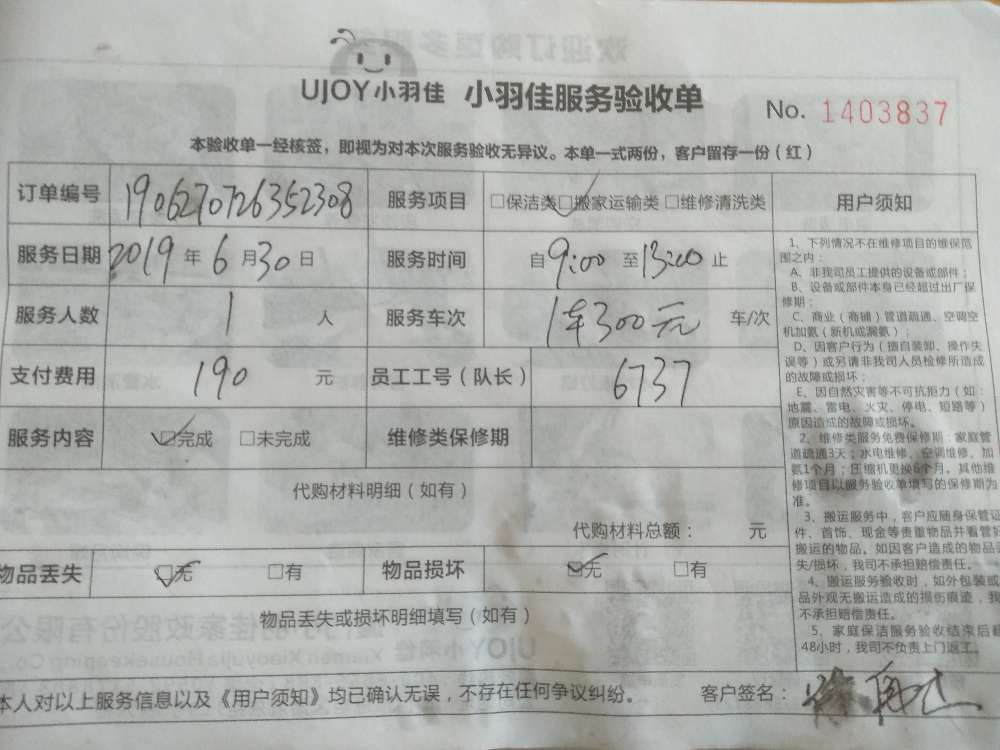 UJOY小羽佳 小羽佳服务验收单 No. 1403837
本验收单一经核签，即视为对本次服务验收无异议。本单一式两份，客户留存一份（红）
订单编号 1906270726352308 服务项目 □保洁类□搬家运输类 □维修清洗类 用户须知
服务日期 2019 年 6 月 30 日 服务时间 自 9:00 至 13:00 止
服务人数 1 人 服务车次 1车300元 车/次
支付费用 190 元 员工工号（队长） 6737
服务内容 □完成 □未完成 维修类保修期
代购材料明细（如有）
代购材料总额： 元
物品丢失 □无 □有 物品损坏 □无 □有
物品丢失或损坏明细填写（如有）
本人对以上服务信息以及《用户须知》均已确认无误，不存在任何争议纠纷。 客户签名：
1、下列情况不在维修项目的维保范
围之内：
A、非我司员工提供的设备或部件；
B、设备或部件本身已经超过出厂保
修期；
C、商业（商铺）管道疏通、空调空
机加氨（新机或漏氨）；
D、因客户行为（擅自装卸、操作失
误等）或另请非我司人员检修所造成
的故障或损坏；
E、因自然灾害等不可抗拒力（如：
地震、雷电、火灾、停电、短路等）
原因造成的故障或损坏。
2、维修类服务免费保修期：家庭管
道疏通3天；水电维修、空调维修、加
氨1个月；压缩机更换6个月。其他维
修项目以服务验收单填写的保修期为
准。
3、搬运服务中，客户应随身保管证
件、首饰、现金等贵重物品并看管好
搬运的物品。如因客户造成的物品丢
失/损坏，我司不承担赔偿责任。
4、搬运服务验收时，如外包装或
品外观无搬运造成的损伤痕迹，我
不承担赔偿责任。
5、家庭保洁服务验收结束后超
48小时，我司不负责上门返工。